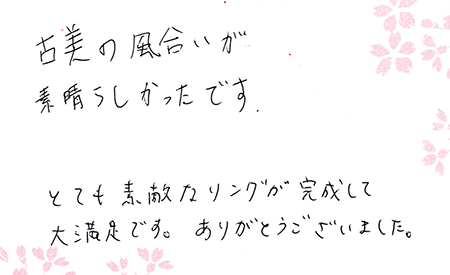 古美の風合いが
素晴らしかったです.
とても素敵なリングが完成して
大満足です。ありがとうございました。